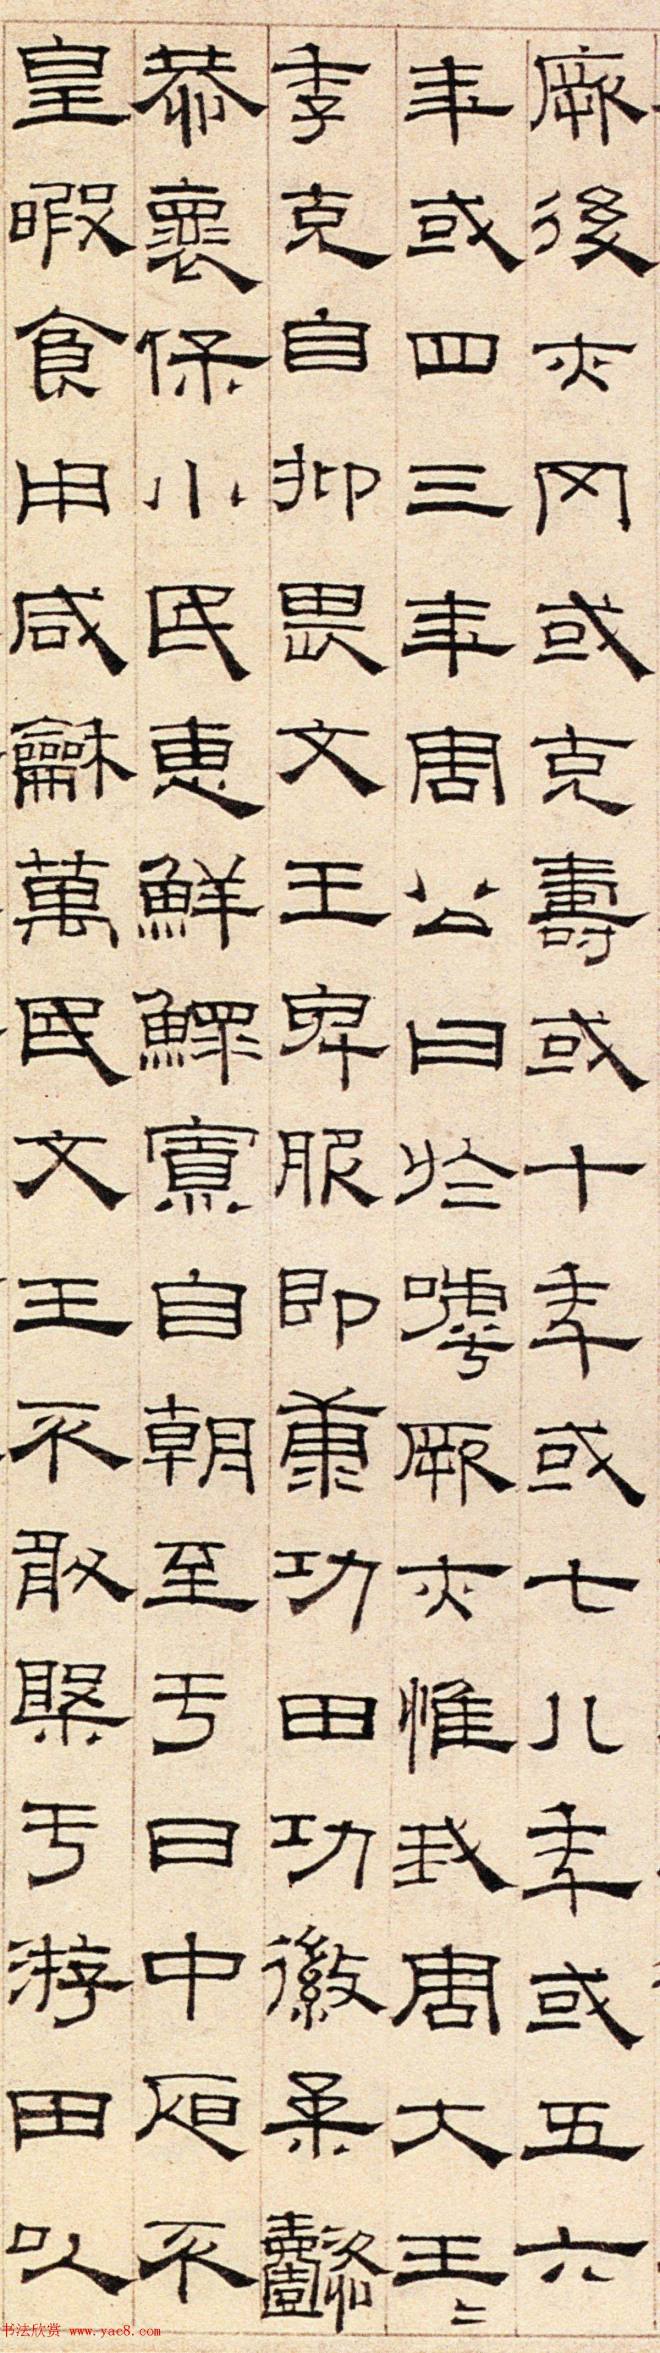 厥後亦罔或克壽或十年或七八年或五六
年或四三年周公曰於嘑厥亦惟我周大王=
季克自抑畏文王卑服即康功田功徽柔懿
恭褱保小民惠鮮鰥寡自朝至于日中昃不
皇暇食用咸龢萬民文王不敢槃于游田以
书法欣赏 www.yac8.com